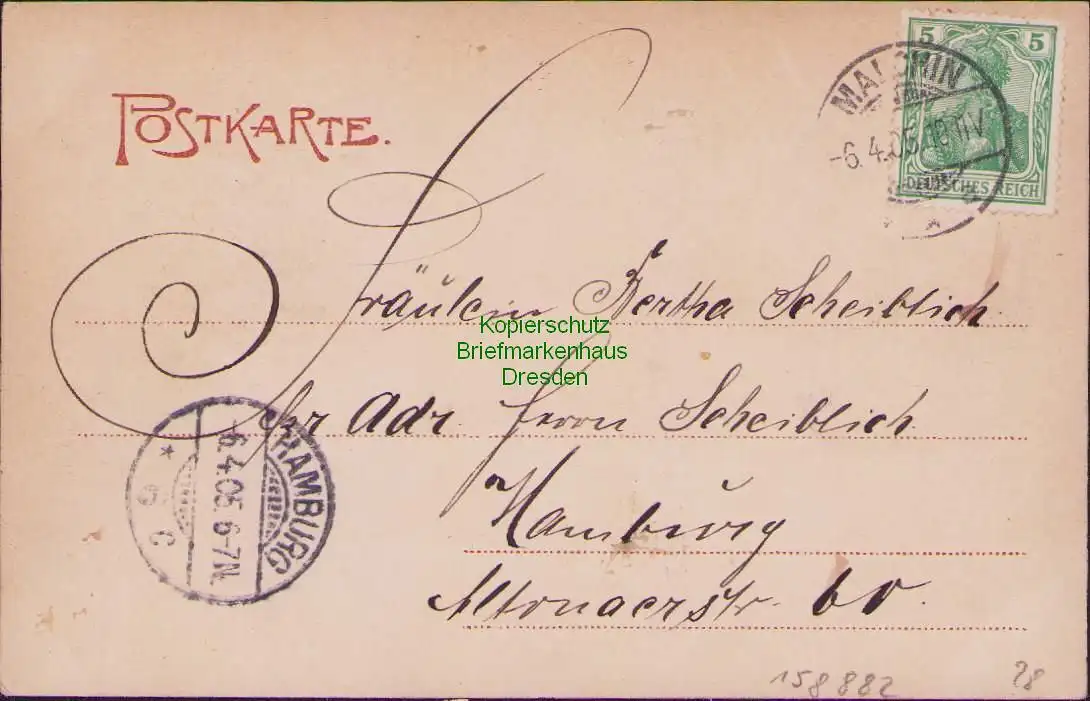 POSTKARTE.
5 5
MALCHIN
-6.4.05.
DEUTSCHES REICH
Fräulein Bertha Scheiblich
Kopierschutz
Briefmarkenhaus
Dresden
Adr. Herrn Scheiblich
HAMBURG
-6.4.05.6-7N.
* 6 C
Hamburg
Altonaerstr. 60.
158882
28